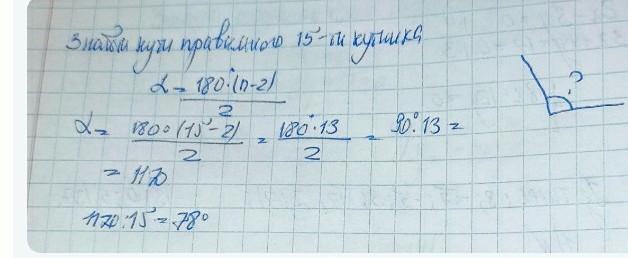 Знайти кути правильного 15-ти кутника
α = 180°(n-2)/2
?
α = 180°(15-2)/2 = 180°·13/2 = 90°·13 =
= 1170
1170:15 = 78°